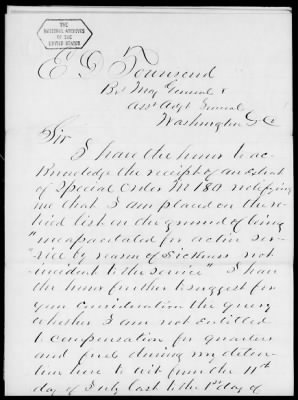 THE
NATIONAL ARCHIVES
OF THE
UNITED STATES
E. D. Townsend
Bvt Maj General &
Asst Adjt General
Washington D.C.
Sir
I have the honor to ac-
knowledge the receipt of an extract
of Special Order No 180 notifying
me that I am placed on the re-
tired list on the ground of being
"incapacitated for active ser-
"vice by reason of sickness not
"incident to the Service" I have
the honor further to suggest for
your consideration the query
whether I am not entitled
to compensation for quarters
and fuel during my deten-
tion here to wit from the 11th
day of July last to the 1st day of